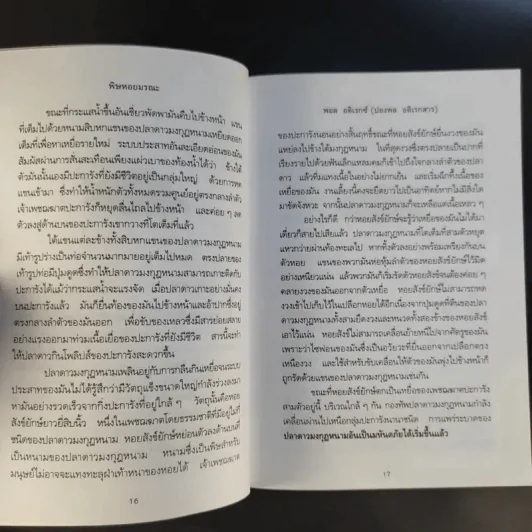 พิษหอยมรณะ
ขณะที่กระแสน้ำขึ้นอันเชี่ยวพัดพามันคืบไปข้างหน้า แขน
ที่เต็มไปด้วยหนามสิบหกแขนของปลาดาวมงกุฎหนามเหยียดออก
เต็มที่เพื่อหาเหยื่อรายใหม่ ระบบประสาทอันละเอียดอ่อนของมัน
สัมผัสผ่านการสั่นสะเทือนเพียงแผ่วเบาของท้องน้ำได้ว่า ข้างใต้
ตัวมันนั้นเองมีปะการังที่ยังมีชีวิตอยู่เป็นกลุ่มใหญ่ ด้วยการหด
แขนเข้ามา ซึ่งทำให้น้ำหนักตัวทั้งหมดรวมศูนย์อยู่ตรงกลางลำตัว
เจ้าเพชฌฆาตปะการังก็หยุดลื่นไถลไปข้างหน้า และค่อย ๆ ลด
ตัวลงสู่ด้านบนของปะการังเขากวางที่โตเต็มที่แล้ว
ใต้แขนแต่ละข้างทั้งสิบหกแขนของปลาดาวมงกุฎหนาม
มีเท้ารูปร่างเป็นท่อจำนวนมากมายอยู่เต็มไปหมด ตรงปลายของ
เท้ารูปท่อมีปุ่มดูดซึ่งทำให้ปลาดาวมงกุฎหนามสามารถเกาะติดกับ
ปะการังได้แม้ว่ากระแสน้ำจะแรงจัด เมื่อปลาดาวเกาะยังมั่นคง
บนปะการังแล้ว มันก็ยื่นท้องของมันไปข้างหน้าและอ้าปากซึ่งอยู่
ตรงกลางลำตัวของมันออก เพื่อขับของเหลวซึ่งมีสารย่อยสลาย
อย่างแรงออกมาท่วมเนื้อเยื่อของปะการังที่ยังมีชีวิต สารนี้จะทำ
ให้ปลาดาวกินโพลิปส์ของปะการังสะดวกขึ้น
ปลาดาวมงกุฎหนามเพลินอยู่กับการกลืนกินเหยื่อจนระบบ
ประสาทของมันไม่ได้รู้สึกว่ามีวัตถุแข็งขนาดใหญ่กำลังร่วงลงมา
หามันอย่างรวดเร็วจากกิ่งปะการังที่อยู่ใกล้ ๆ วัตถุนั้นคือหอย
สังข์ยักษ์ยาวยี่สิบนิ้ว หนึ่งในเพชฌฆาตโดยธรรมชาติที่มีอยู่ไม่กี่
ชนิดของปลาดาวมงกุฎหนาม หอยสังข์ยักษ์หย่อนตัวลงด้านบนที่
เป็นหนามของปลาดาวมงกุฎหนาม หนามซึ่งเป็นพิษสำหรับ
มนุษย์ไม่อาจจะแทงทะลุฝ่าเท้าหนาของหอยได้ เจ้าเพชฌฆาต
16
พอล อดิเรกซ์ (ปองพล อดิเรกสาร)
ของปะการังนอนอย่างสิ้นฤทธิ์ขณะที่หอยสังข์ยักษ์ยื่นงวงของมัน
แหย่ลงไปข้างใต้มงกุฎหนาม ในที่สุดงวงซึ่งตรงปลายเป็นปากที่
เรียงรายไปด้วยฟันเล็กแหลมคมก็เข้าไปถึงใจกลางลำตัวของปลา
ดาว แล้วก็แทงเนื้อในอย่างไม่ยากเย็น และเริ่มฉีกทึ้งเนื้อของ
เหยื่อของมัน งานเลี้ยงนี้คงจะยืดยาวไปเป็นอาทิตย์หากไม่มีสิ่งใด
มาขัดจังหวะ จากนั้นปลาดาวมงกุฎหนามก็จะเหลือแต่เนื้อเหลว ๆ
อย่างไรก็ดี กว่าหอยสังข์ยักษ์จะรู้ว่าเหยื่อของมันไม่ได้มา
เดี่ยวก็สายไปเสียแล้ว ปลาดาวมงกุฎหนามที่โตเต็มที่สามตัวหยุด
แหวกว่ายผ่านท้องทะเลไป หากทั้งตัวลงอย่างพร้อมเพรียงกันบน
ตัวหอย แขนของพวกมันห่อหุ้มลำตัวของหอยสังข์ยักษ์ไว้มิด
อย่างเหนียวแน่น แล้วพวกมันก็เริ่มรัดตัวหอยสังข์จนต้องค่อย ๆ
คลายงวงของมันออกจากตัวเหยื่อ หอยสังข์ยักษ์ไม่สามารถหด
งวงเข้าไปเก็บไว้ในเปลือกหอยได้อีกเนื่องจากปุ่มดูดที่ตีนของปลา
ดาวมงกุฎหนามทั้งสามยึดงวงและหนวดทั้งสองข้างของหอยสังข์
เอาไว้แน่น หอยสังข์ไม่สามารถเคลื่อนย้ายหนีไปจากศัตรูของมัน
เพราะว่าไซฟอนของมันซึ่งเป็นอวัยวะที่ยื่นออกจากเปลือกตรง
เหนืองวง และใช้สำหรับขับเคลื่อนให้ตัวของมันพุ่งไปข้างหน้าก็
ถูกรัดด้วยแขนของปลาดาวมงกุฎหนามเช่นกัน
ขณะที่หอยสังข์ยักษ์ตกเป็นเหยื่อของเพชฌฆาตปะการัง
สามตัวอยู่นี้ บริเวณใกล้ ๆ กัน กองทัพปลาดาวมงกุฎหนามกำลัง
เคลื่อนผ่านไปเหนือกลุ่มปะการังนานาชนิด การแพร่ระบาดของ
ปลาดาวมงกุฎหนามอันเป็นมหันตภัยได้เริ่มขึ้นแล้ว
17